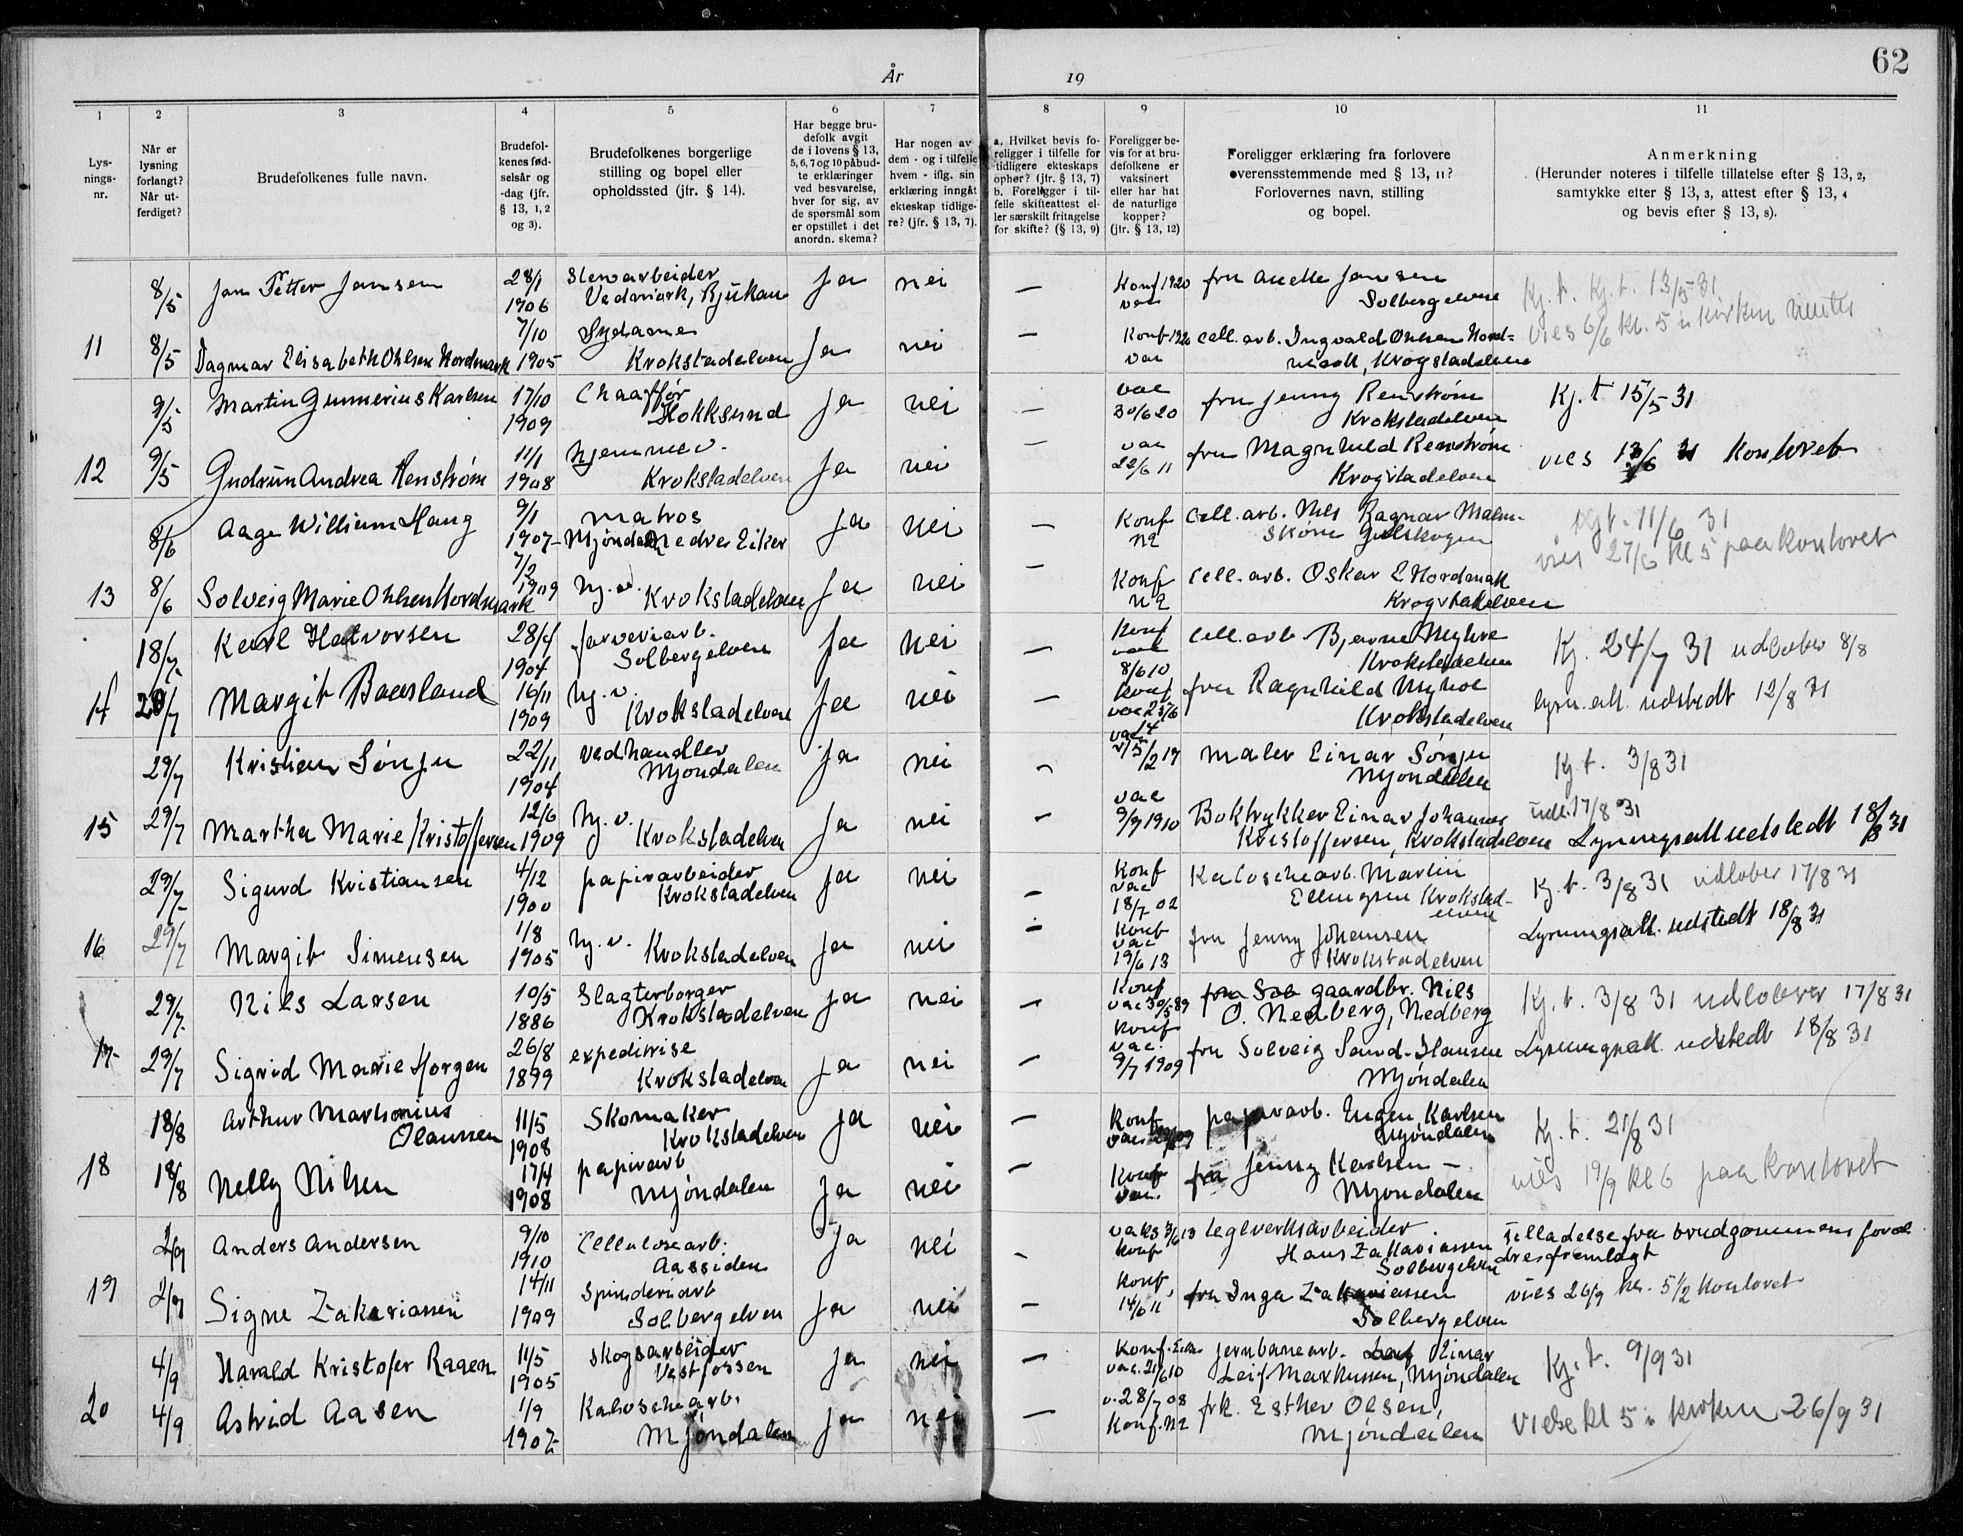 År 19
62
1 2 3 4 5 6 7 8 9 10 11
Lys-
nings-
nr.
Når er
lysning
forlangt?
Når ut-
ferdiget?
Brudefolkenes fulle navn.
Brudefol-
kenes fød-
selsår og
-dag (jfr.
§ 13, 1, 2
og 3).
Brudefolkenes borgerlige
stilling og bopel eller
opholdssted (jfr. § 14).
Har begge bru-
defolk avgit
de i lovens § 13,
5, 6, 7 og 10 påbud-
te erklæringer
ved besvarelse,
hver for sig, av
de spørsmål som
er opstillet i det
anordn. skema?
Har nogen av
dem - og i tilfelle
hvem - iflg. sin
erklæring inngått
ekteskap tidlige-
re? (jfr. § 13, 7).
a. Hvilket bevis fo-
religger i tilfelle for
tidligere ekteskaps
ophør? (jfr. § 13, 7)
b. Foreligger i til-
felle skifteattest el-
ler særskilt fritagelse
for skifte? (§ 13, 9)
Foreligger be-
vis for at bru-
defolkene er
vaksinert
eller har hat
de naturlige
kopper?
(jfr. § 13, 12)
Foreligger erklæring fra forlovere
overensstemmende med § 13, 11?
Forlovernes navn, stilling
og bopel.
Anmerkning
(Herunder noteres i tilfelle tillatelse efter § 13, 2,
samtykke efter § 13, 3, attest efter § 13, 4
og bevis efter § 13, 8).
8/5 Jan Petter Jansen 28/1 1906 Stenarbeider
Vedmork, Rjukan Ja nei — Konf 1920 vac fru Anette Jansen
Solbergelven Kj. t. Kj. t. 13/5-31
11 8/5 Dagmar Elisabeth Ohlsen Nordmark 7/10 1905 Sydame
Krokstadelven Ja nei — Konf 1920 vac cell. arb. Ingvald Ohlsen Nord-
mark, Krogstadelven vies 6/6 kl. 5 i kirken
9/5 Martin Gunnerius Karlsen 17/10 1909 Chaaffør
Hokksund Ja nei — vac 30/6 20 fru Jenny Renstrøm
Krokstadelven Kj. t 15/5-31
12 9/5 Gudrun Andrea Renstrøm 11/1 1908 hjemmev.
Krokstadelven Ja nei — vac 22/6 11 fru Magnhild Renstrøm
Krogstadelven vies 13/6 31 kontoret
8/6 Aage William Haug 9/1 1907 matros
Mjøndalen Nedre Eiker Ja nei — Konf n2 Cell. arb. Nils Ragnar Malm-
Skøin Gulskogen Kj t. 11/6 31
13 8/6 Solveig Marie Ohlsen Nordmark 7/2 1909 hj. v. Krokstadelven Ja nei — Konf n2 cell. arb. Oskar E Nordmark
Krogstadelven vies 27/6 kl 5 paa kontoret
18/7 Karl Halvorsen 28/4 1904 farveriarb.
Solbergelven Ja nei — Konf vac 8/6 10 cell. arb. Bjarne Myhre
Krokstadelven Kj. 24/7 31 udløber 8/8
14 20/7 Margit Baasland 16/11 1909 hj. v.
Krokstadelven Ja nei — Konf vac 25/6 14 fru Ragnhild Myhre
Krokstadelven lysn. att. udstedt 12/8 31
29/7 Kristian Sønju 22/11 1904 vedhandler
Mjøndalen Ja nei — vac 15/2 17 maler Einar Sønju
Mjøndalen Kj t. 3/8 31
15 29/7 Martha Marie Kristoffersen 12/6 1909 hj. v.
Krokstadelven Ja nei — vac 9/9 1910 Boktrykker Einar Johannes
Kristoffersen, Krokstadelven udl. 17/8 31
Lysningsatt udstedt 18/8 31
29/7 Sigurd Kristiansen 4/12 1900 papirarbeider
Krokstadelven Ja nei — Konf vac 18/7 02 Kaloschearb. Martin
Ellingsen Krokstad-
elven Kj. t. 3/8 31 udløber 17/8 31
16 29/7 Margit Simensen 1/8 1905 hj. v. Krokstadelven Ja nei — Konf vac 19/6 13 fru Jenny Johansen
Krokstadelven Lysningsatt. udstedt 18/8 31
29/7 Nils Larsen 10/5 1886 Slagterborger
Krokstadelven Ja nei — Konf vac 30/5 89 gaardbr. Nils
O. Nedberg, Nedberg Kj. t. 3/8 31 udløber 17/8 31
17 29/7 Sigrid Marie Horgen 26/8 1899 expeditrise
Krokstadelven Ja nei — Konf vac. 9/7 1909 fru Solveig Sand-Hansen
Mjøndalen Lysningsatt. udstedt 18/8 31
18/8 Arthur Marthonius
Olaussen 11/5 1908 Skomaker
Krokstadelven Ja nei — Konf papirarb. Eugen Karlsen
Mjøndalen Kj. t. 21/8 31
18 18/8 Nelly Nilsen 17/4 1908 papirarb
Mjøndalen Ja nei — Konf vac. fru Jenny Karlsen —
Mjøndalen vies 19/9 kl 6 paa kontoret
2/9 Anders Andersen 9/10 1910 Cellulosearb.
Aassiden Ja nei — vaks 3/6 13 Konf teglverksarbeider
Hans Zakariassen
Solbergelven Tilladelse fra brudgommens foræl
dres fremlagt
19 2/9 Signe Zakariassen 14/11 1909 Spinderiarb
Solbergelven Ja nei — Konf, 14/6 11 fru Inga Zakariassen
Solbergelven vies 26/9 kl. 5 1/2 kontoret
4/9 Harald Kristofer Ragen 11/5 1905 Skogsarbeider
Vestfossen Ja nei — Konf. vac. 21/6 10 jernbanearb. Einar
Leif Markussen, Mjøndalen Kj. t. 9/9 31
20 4/9 Astrid Aasen 1/9 1907 Kaloschearb.
Mjøndalen Ja nei — v. 28/7 08 Konf. n2 frk. Esther Olsen,
Mjøndalen Vielse kl 5 i kirken 26/9 31